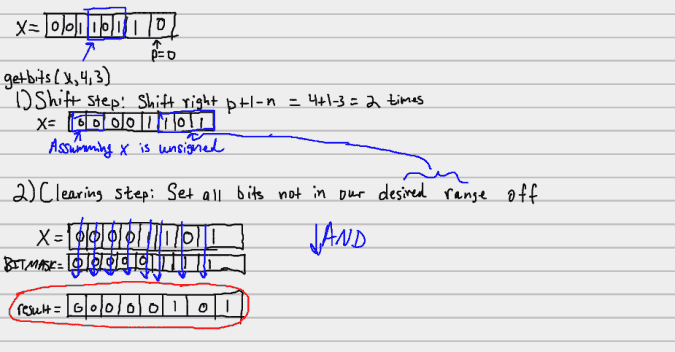 X= 0 0 1 1 0 1 1 0
p=0
getbits(x,4,3)
1) Shift step: Shift right p+1-n = 4+1-3 = 2 times
X= 0 0 0 0 1 1 0 1
Assumming X is unsigned
2) Clearing step: Set all bits not in our desired range off
X= 0 0 0 0 1 1 0 1
↓AND
BITMASK= 0 0 0 0 0 1 1 1
result= 0 0 0 0 0 1 0 1